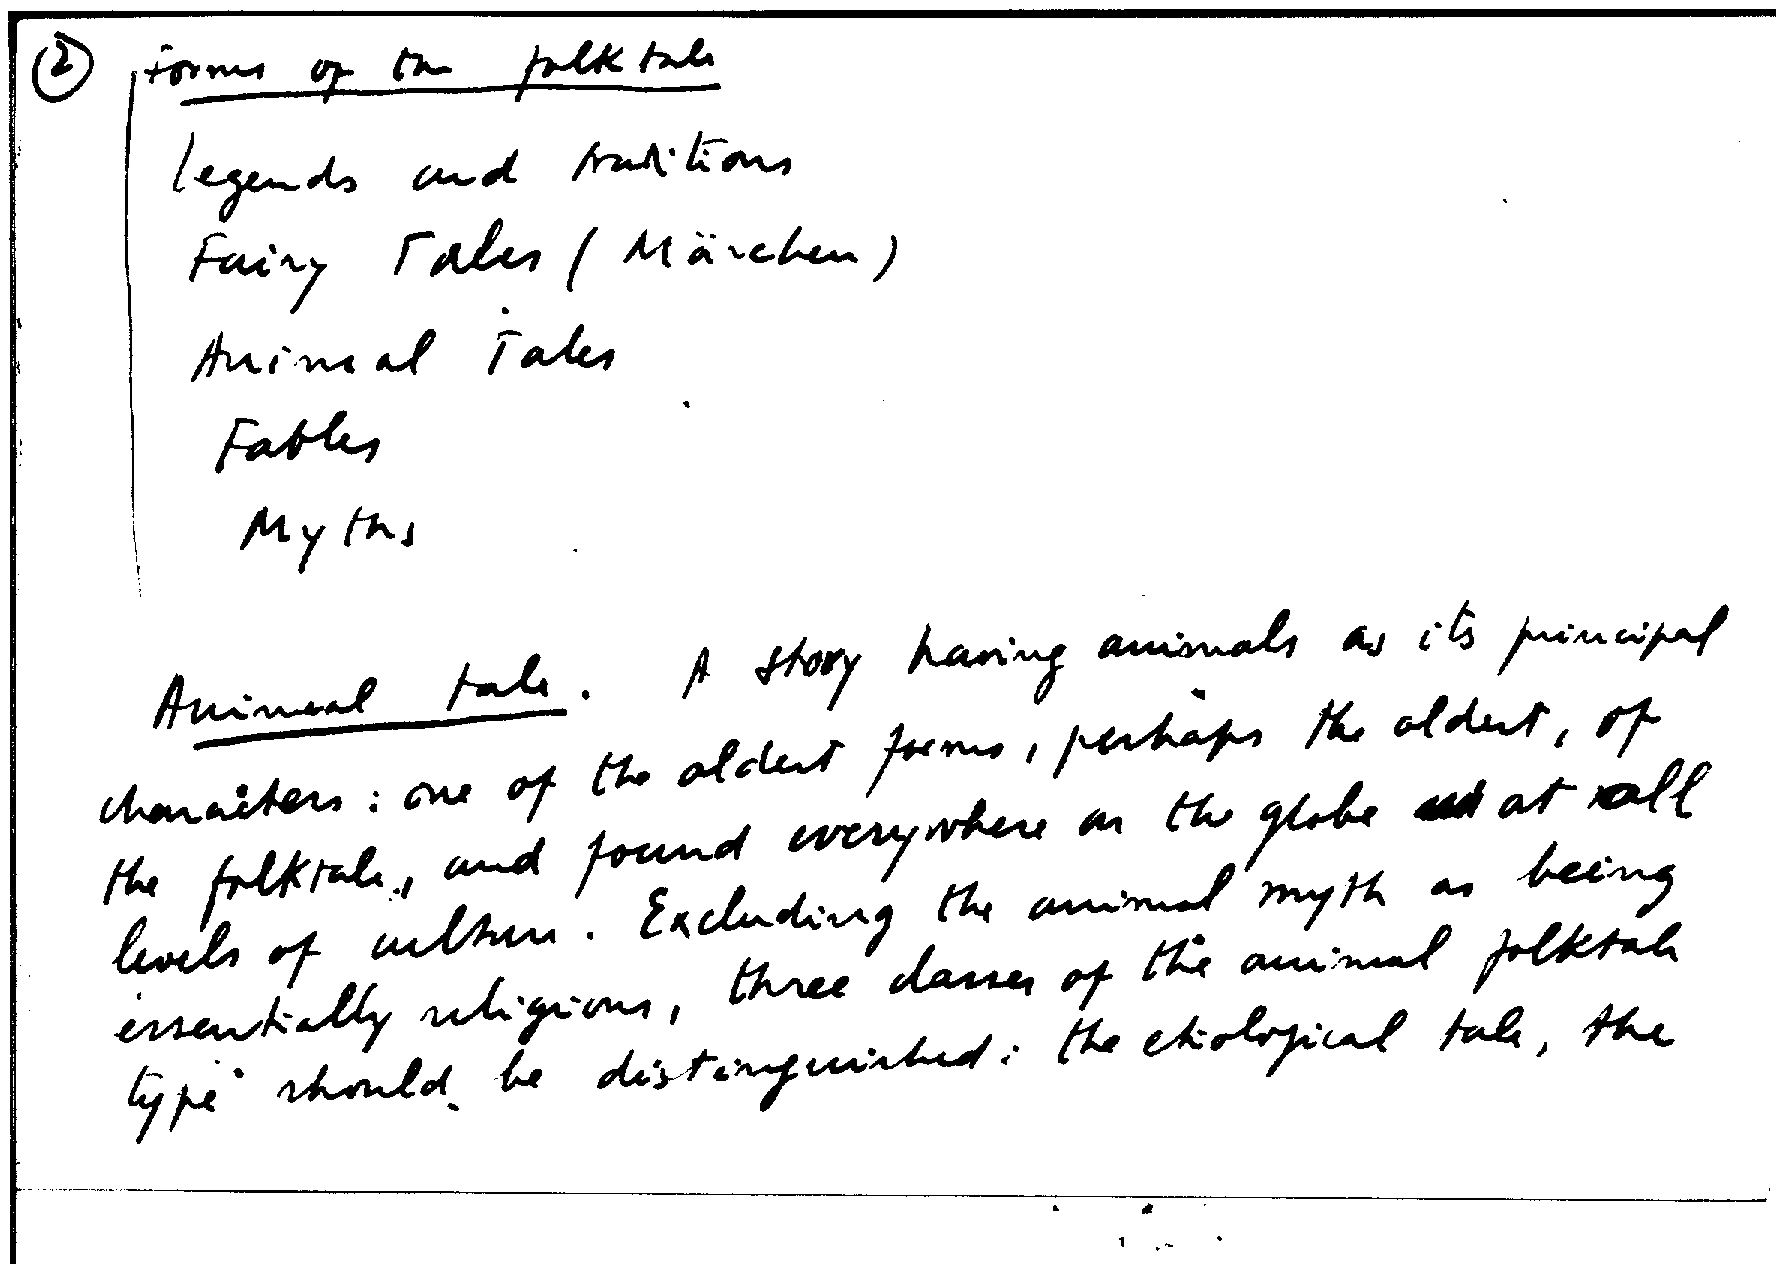 ② Forms of the folktale
Legends and traditions
Fairy Tales (Märchen)
Animal Tales
Fables
Myths
Animal tale. A story having animals as its principal
characters: one of the oldest forms, perhaps the oldest, of
the folktale, and found everywhere on the globe at all
levels of culture. Excluding the animal myth as being
essentially religious, three classes of the animal folktale
type should be distinguished: the etiological tale, the